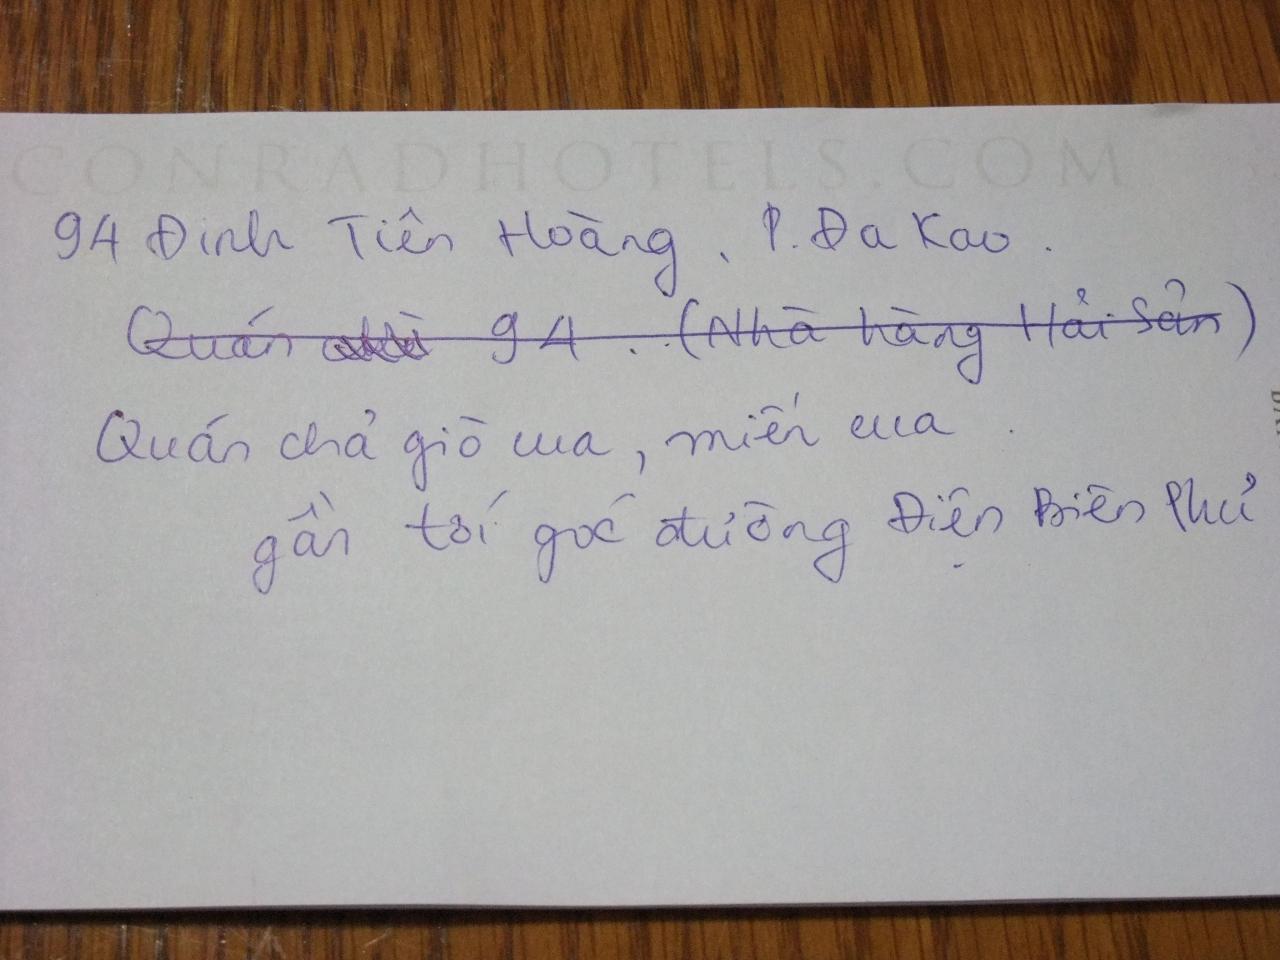 CONRADHOTELS.COM
94 Đinh Tiên Hoàng, P. Đa Kao.
Quán 94. (Nhà hàng Hải Sản)
Quán chả giò cua, miến cua.
gần tới góc đường Điện Biên Phủ